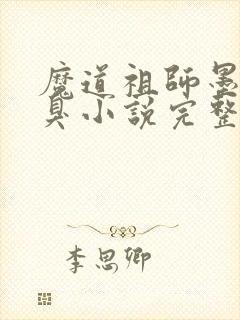 魔道祖師墨
臭小說完整
李思卿